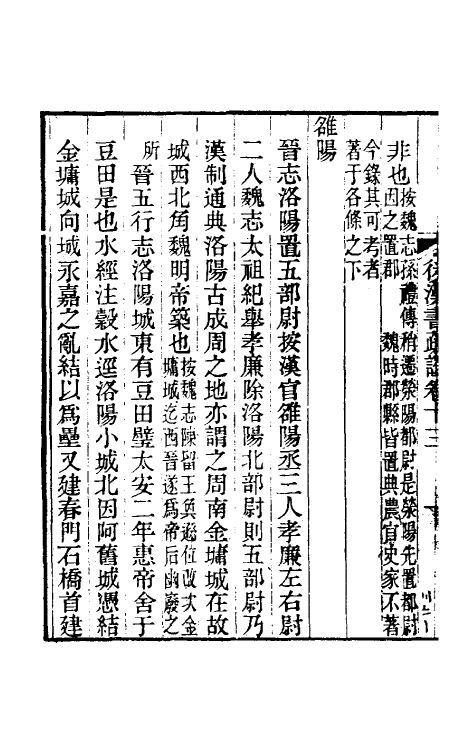 非也按魏志孫禮傳稍遷滎陽都尉是滎陽先置都尉
也因之置郡　魏時郡縣皆置典農官史家不著
今錄其可考者
著于各條之下
雒陽
晉志洛陽置五部尉按漢官雒陽丞三人孝廉左右尉
二人魏志太祖紀舉孝廉除洛陽北部尉則五部尉乃
漢制通典洛陽古成周之地亦謂之周南金墉城在故
城西北角魏明帝築也按魏志陳留王奐遜位故次金
墉城迄西晉遂爲帝后幽廢之
所晉五行志洛陽城東有豆田壁太安二年惠帝舍于
豆田是也水經注穀水逕洛陽小城北因阿舊城憑結
金墉城向城永嘉之亂結以爲壘又建春門石橋首建
後漢書疏證卷十三